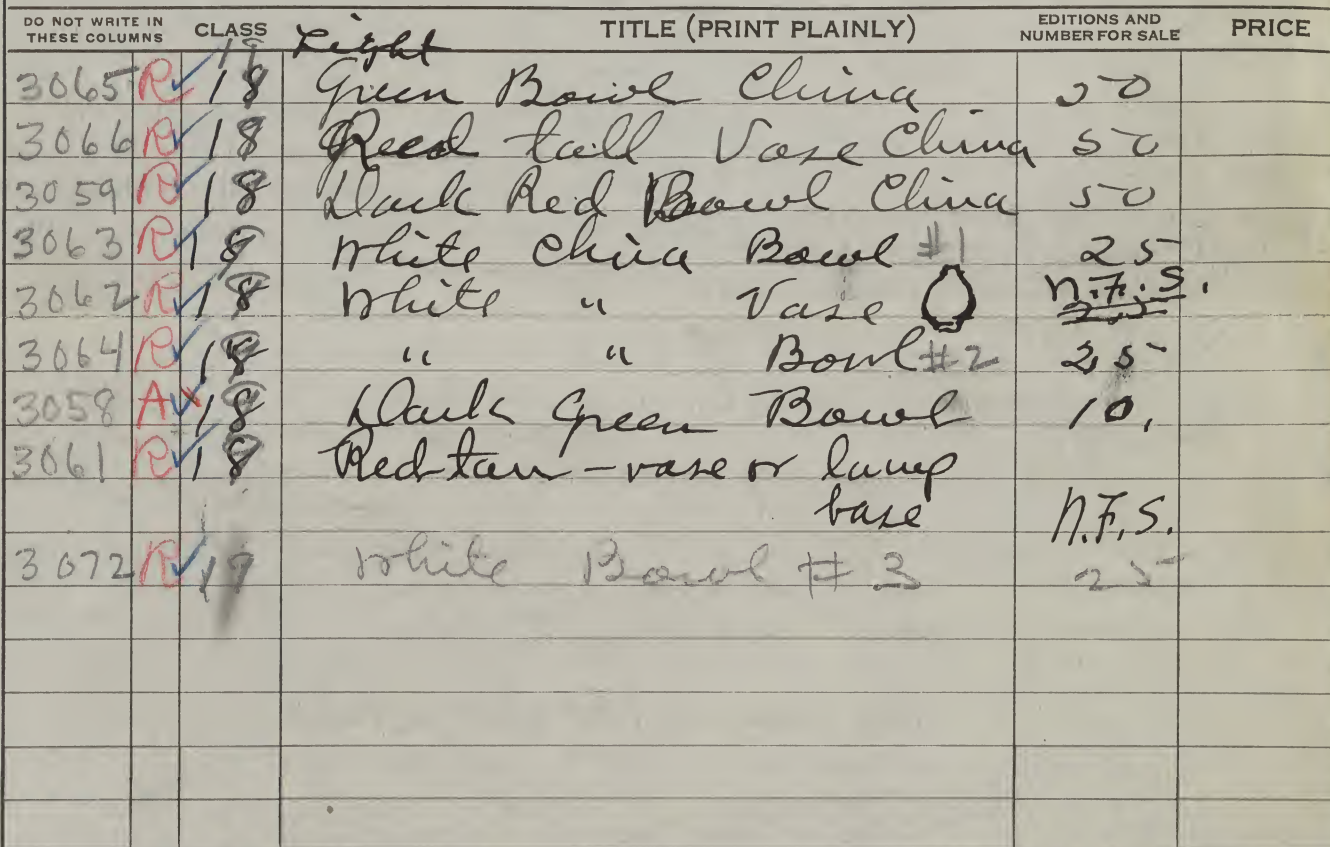 DO NOT WRITE IN THESE COLUMNS CLASS TITLE (PRINT PLAINLY) EDITIONS AND NUMBER FOR SALE PRICE
Light
3065 R 18 Green Bowl China 50
3066 R 18 Reed tall Vase China 50
3059 R 18 Dark Red Bowl China 50
3063 R 18 White China Bowl #1 25
3062 R 18 White " Vase N.F.S.
3064 R 18 " " Bowl #2 25
3058 A x 18 Dark Green Bowl 10.
3061 R 18 Red-tan - vase or lamp
base N.F.S.
3072 R 17 White Bowl #3 25